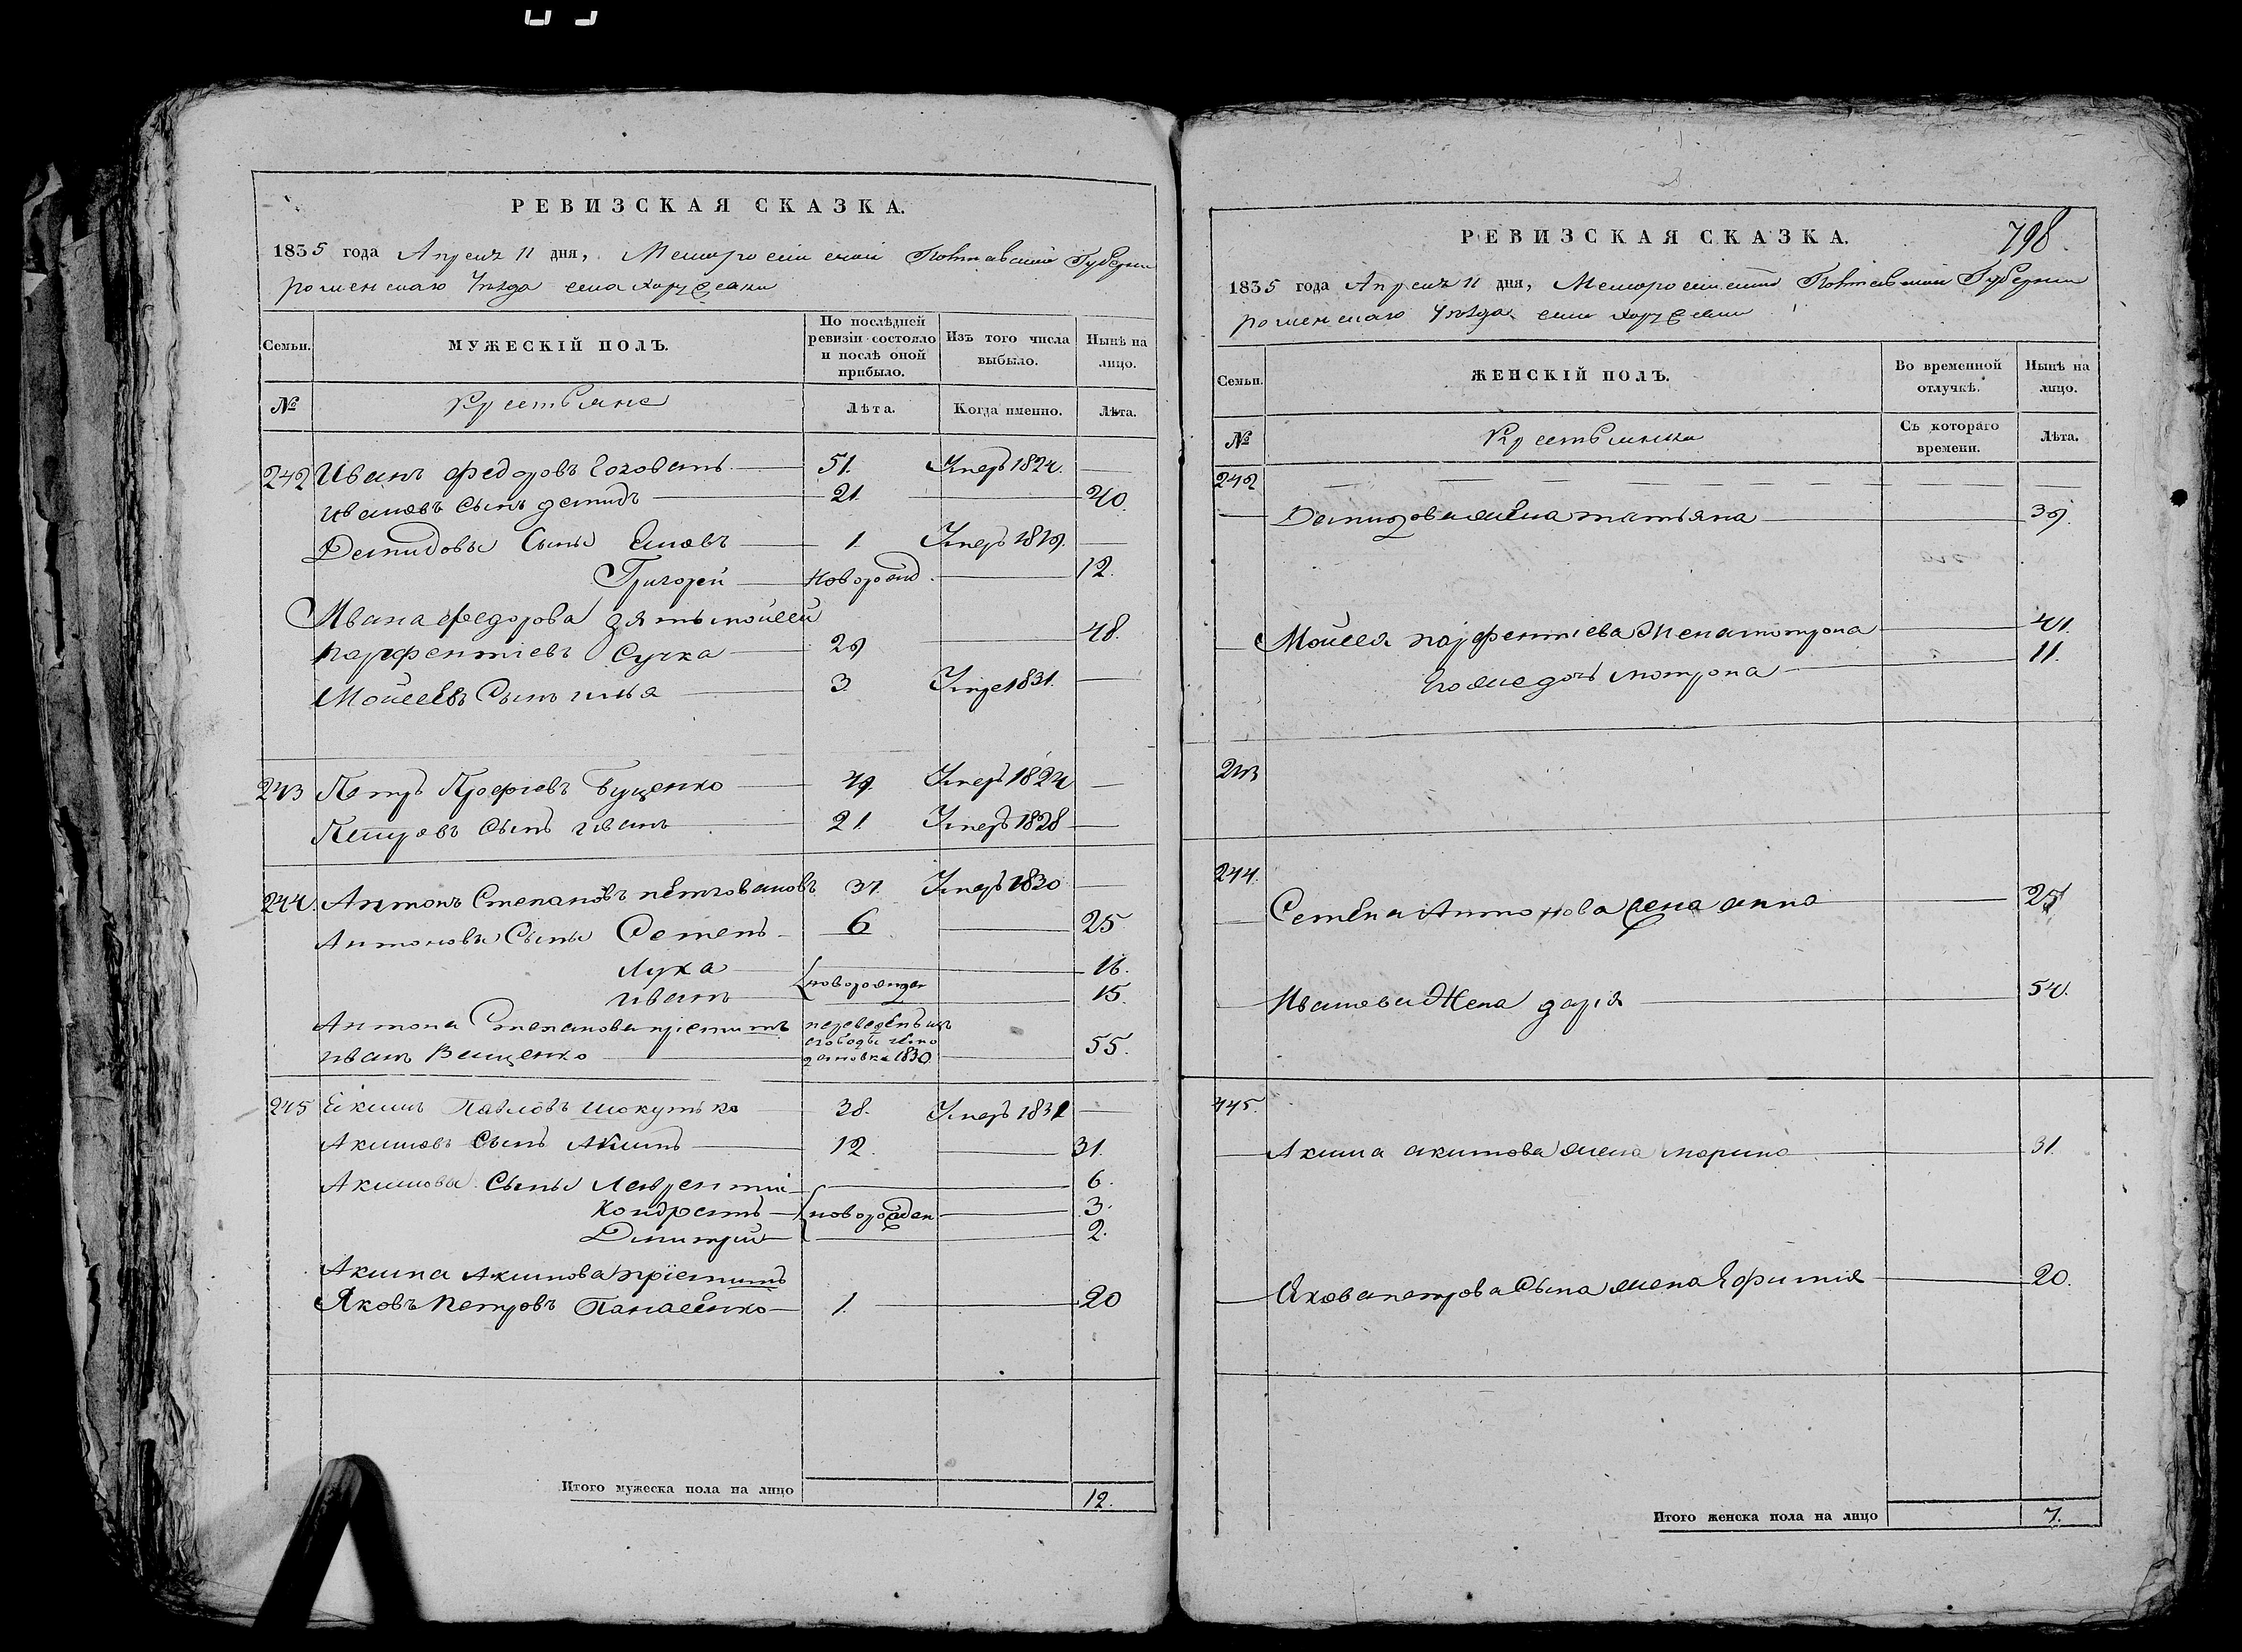 РЕВИЗСКАЯ СКАЗКА.
1835 года Апреля 11 дня, Малоросийской Полтавской Губернии
роменскаго Уѣзда села
Семьи.
МУЖЕСКІЙ ПОЛЪ.
По послѣдней ревизіи состояло и послѣ оной прибыло.
Изъ того числа выбыло.
Нынѣ на лицо.
№
Крестьяне
Лѣта.
Когда именно.
Лѣта.
242 Иванъ Федоровъ 51. Умеръ 1824.
Ивановъ Сынъ демидъ 21. 40.
Демидовы Сыны 1. Умеръ 1819.
Григорей новорожд. 12.
Ивана федорова зять мойсей
парфентіевъ Сучка 29 48.
Мойсеевъ Сынъ илья 3. Умре 1831.
243 Петръ Бущенко 49. Умеръ 1824
Петровъ Сынъ иванъ 21. Умеръ 1828
244. Антонъ Степановъ 37. Умеръ 1830
Антоновы Сыны Семенъ 6 25.
Лука 16.
новорожден
иванъ 15.
Антона Степанова пріемишъ переведенъ изъ
иванъ слободы 1830 55.
245 Екимъ Павловъ 28. Умеръ 1831
Акимовъ Сынъ Акимъ 12. 31.
Акимовы Сыны Лаврентій 6.
Кондратъ новорожден 3.
Дмитрій 2.
Акима Акимова пріемишъ
Яковъ Петровъ Панасенко 1. 20
Итого мужеска пола на лицо 12.
798.
РЕВИЗСКАЯ СКАЗКА.
1835 года Апреля 11 дня, Малоросийской Полтавской Губернии
роменскаго Уѣзда села
Семьи.
ЖЕНСКІЙ ПОЛЪ.
Во временной отлучкѣ.
Нынѣ на лицо.
№
Крестьянки
Съ котораго времени.
Лѣта.
242
Демидова жена татьяна 39.
Мойсея парфентіева Жена мотрона 41.
Егоже дочь мотрона 11.
243
244.
Семена Антонова жена анна 25
Иванова Жена дарія 54.
245.
Акима акимова жена марина 31.
Якова петрова Сына жена Ефимія 20.
Итого женска пола на лицо 7.